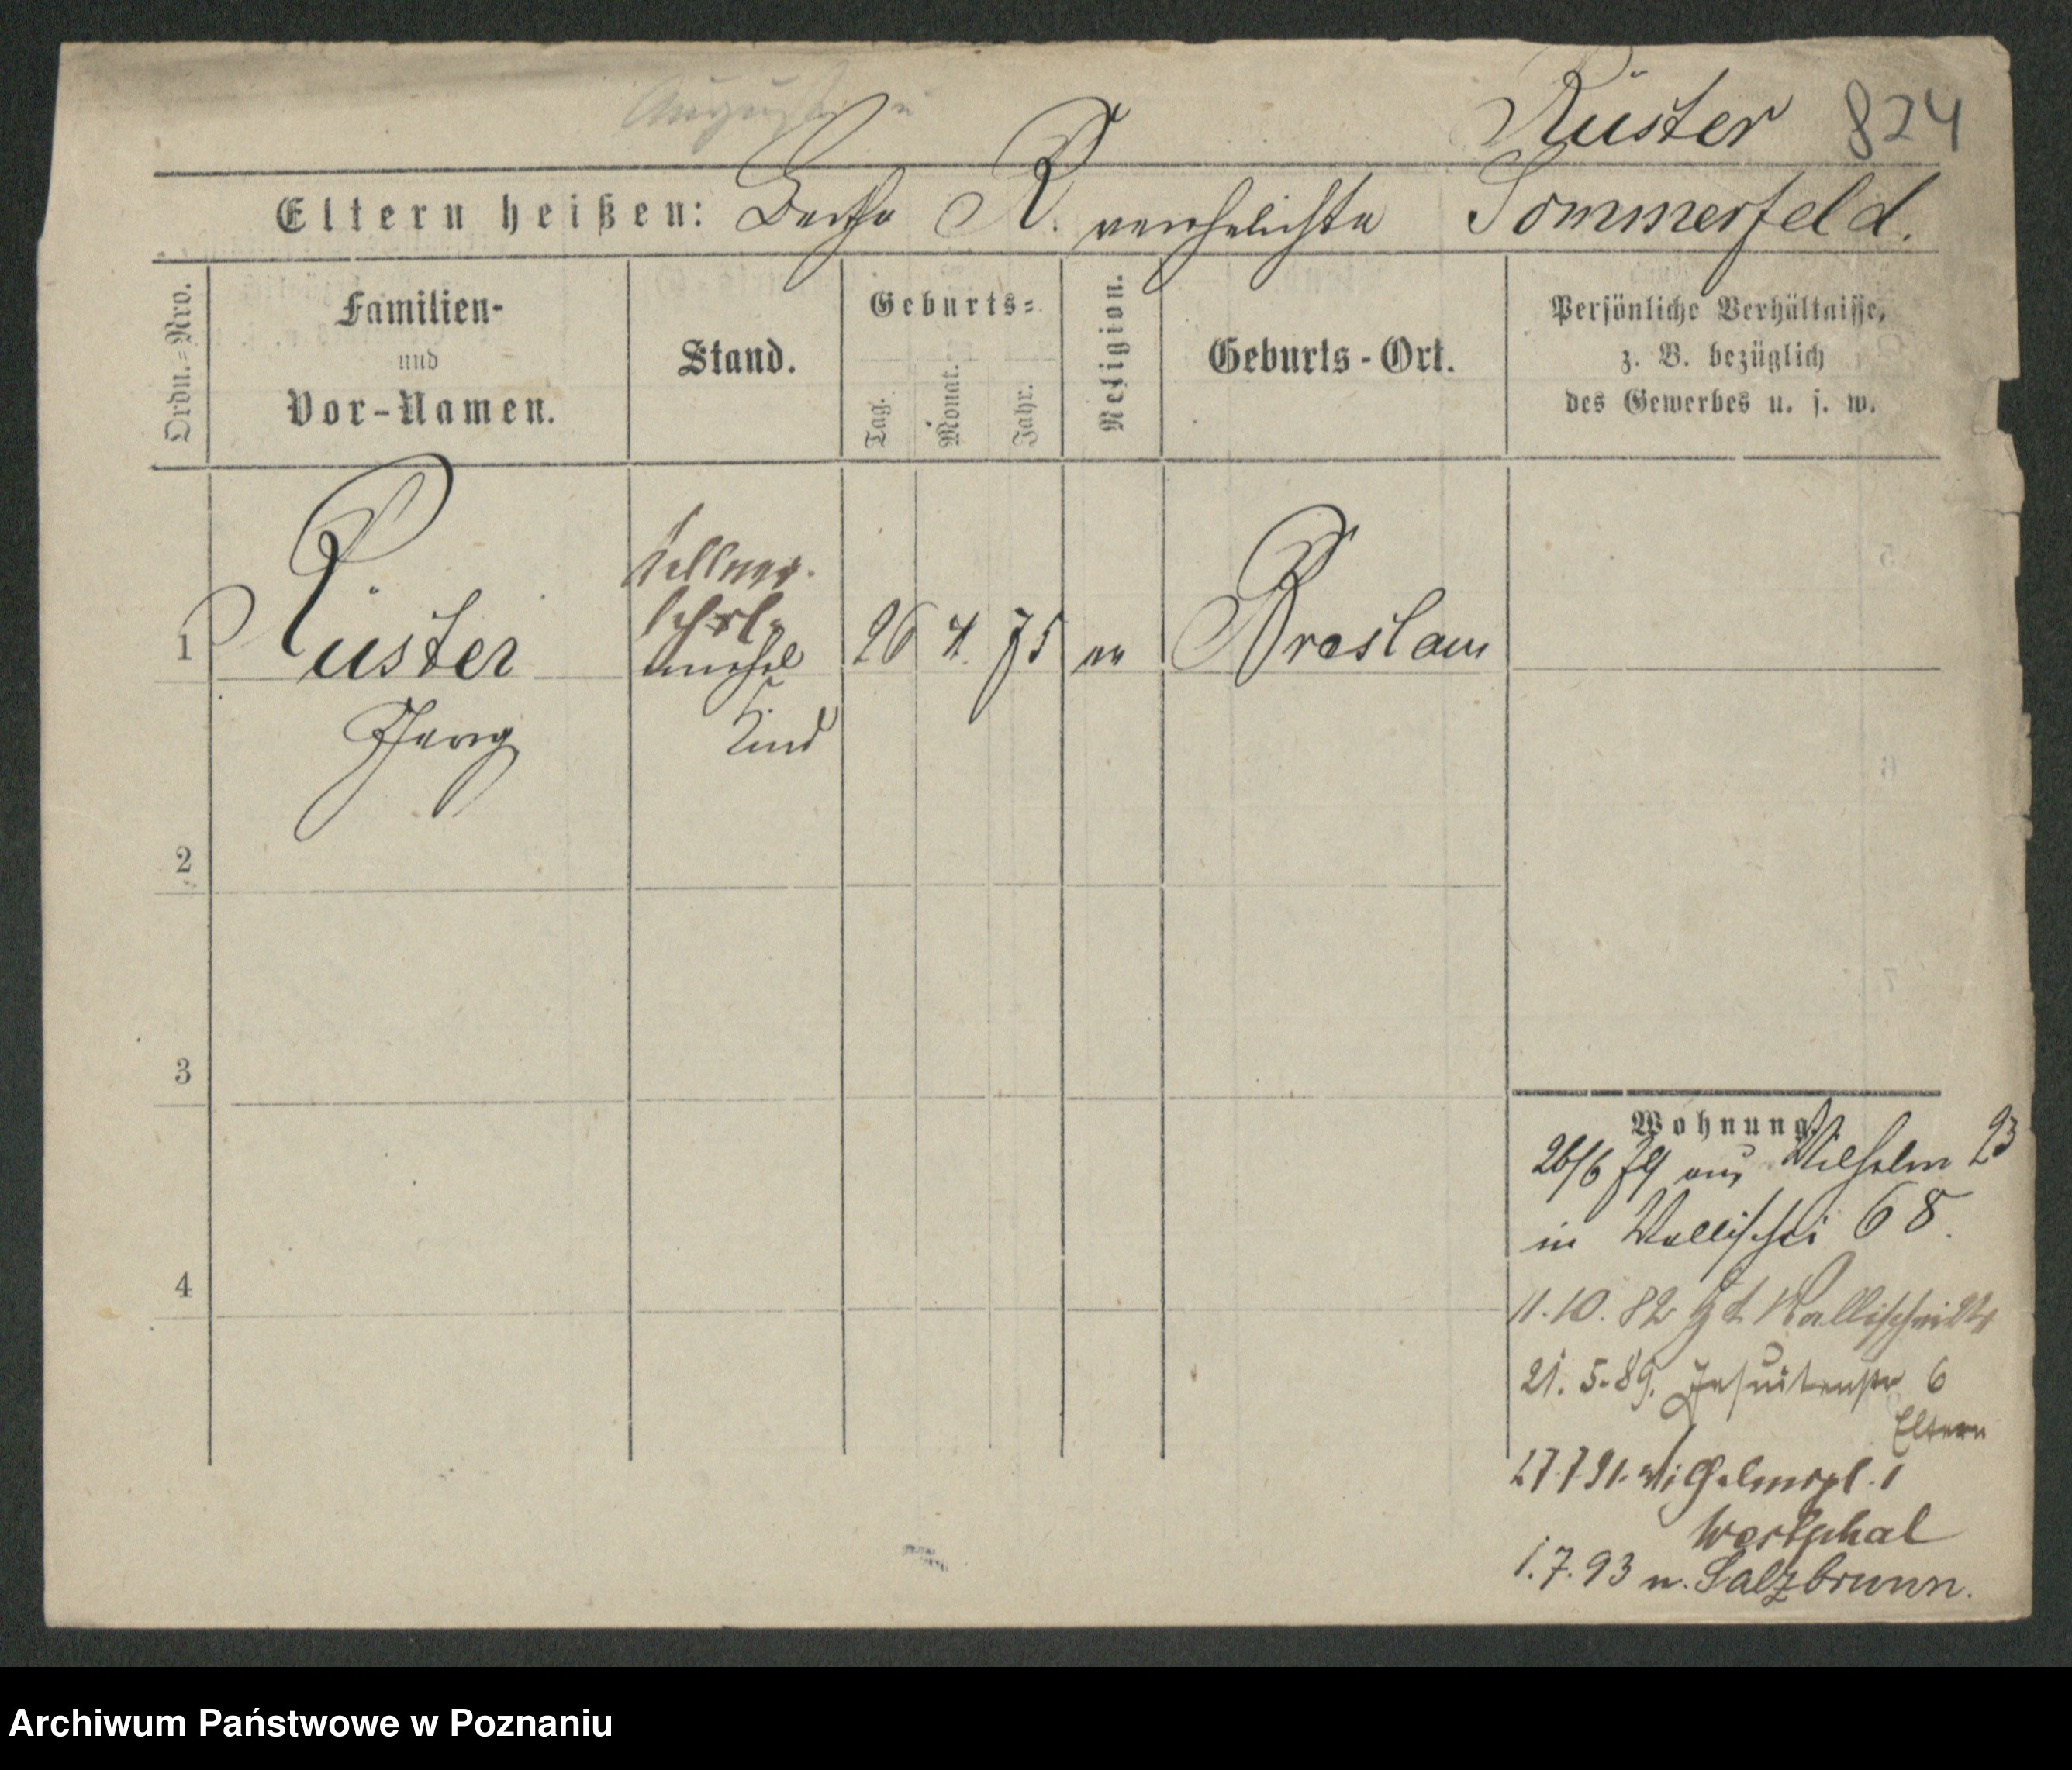 August
Küster 824
Eltern heißen: Bertha K. verehelichte Sommerfeld.
Ordn.=Nro.
Familien-
und
Vor-Namen.
Stand.
Geburts=
Tag.
Monat.
Jahr.
Religion.
Geburts-Ort.
Persönliche Verhältnisse,
z. B. bezüglich
des Gewerbes u. s. w.
Kellner.
lehrl.
1 Küster unehel 26 4. 75 ev Breslau
Georg Kind
2
3
4
Wohnung.
26/6 79 aus Wilhelm 23
in Wallischei 68.
11.10.82 Wallischei
21.5.89. Jesuitenstr 6
Eltern
27.7.91. Wilhelmspl. 1
Westphal
1.7.93 n. Salzbrunn.
Archiwum Państwowe w Poznaniu